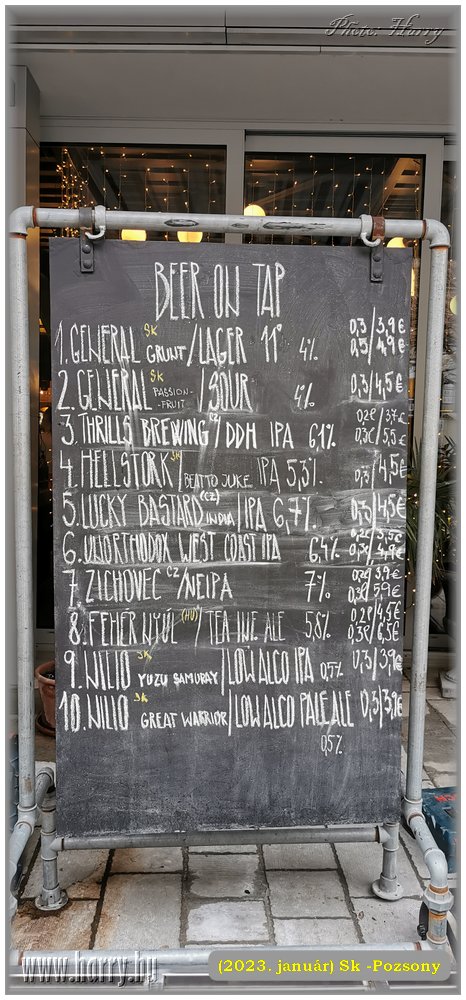 Photo: Harry
BEER ON TAP
1. GENERAL SK GRUNT / LAGER 11° 4% 0,3 / 3,9 €
0,5 / 4,9 €
2. GENERAL SK PASSION- / SOUR 4% 0,3 / 4,5 €
-FRUIT-
3. THRILLS BREWING CZ / DDH IPA 6,1% 0,2€ / 3,7 €
0,3€ / 5,5 €
4. HELLSTORK SK / BEAT TO JUKE IPA 5,3% 0,3 / 4,5 €
5. LUCKY BASTARD (CZ) INDIA / IPA 6,7% 0,3 / 4,5 €
6. UNORTHODOX WEST COAST IPA 6,4% 0,2€ / 3,5€
0,3€ / 4,9€
7 ZICHOVEC CZ / NEIPA 7% 0,2€ / 3,9€
0,3€ / 5,9€
8. FEHER NYÚL (HU) / TEA INE ALE 5,8% 0,2€ / 4,5€
0,3€ / 6,5€
9. NILIO SK YUZU SAMURAY / LOW ALCO IPA 0,7% 0,3 / 3,9€
10. NILIO SK GREAT WARRIOR / LOW ALCO PALE ALE 0,3 / 3,9€
0,5%
www.harry.hu
(2023. január) Sk -Pozsony